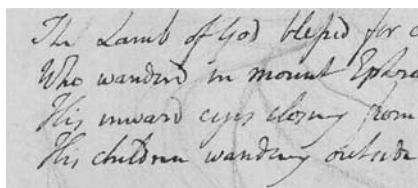 The Lamb of God blessed for
Who wanderd in mount Ephra
His inward eyes closing from
His children wandering outside